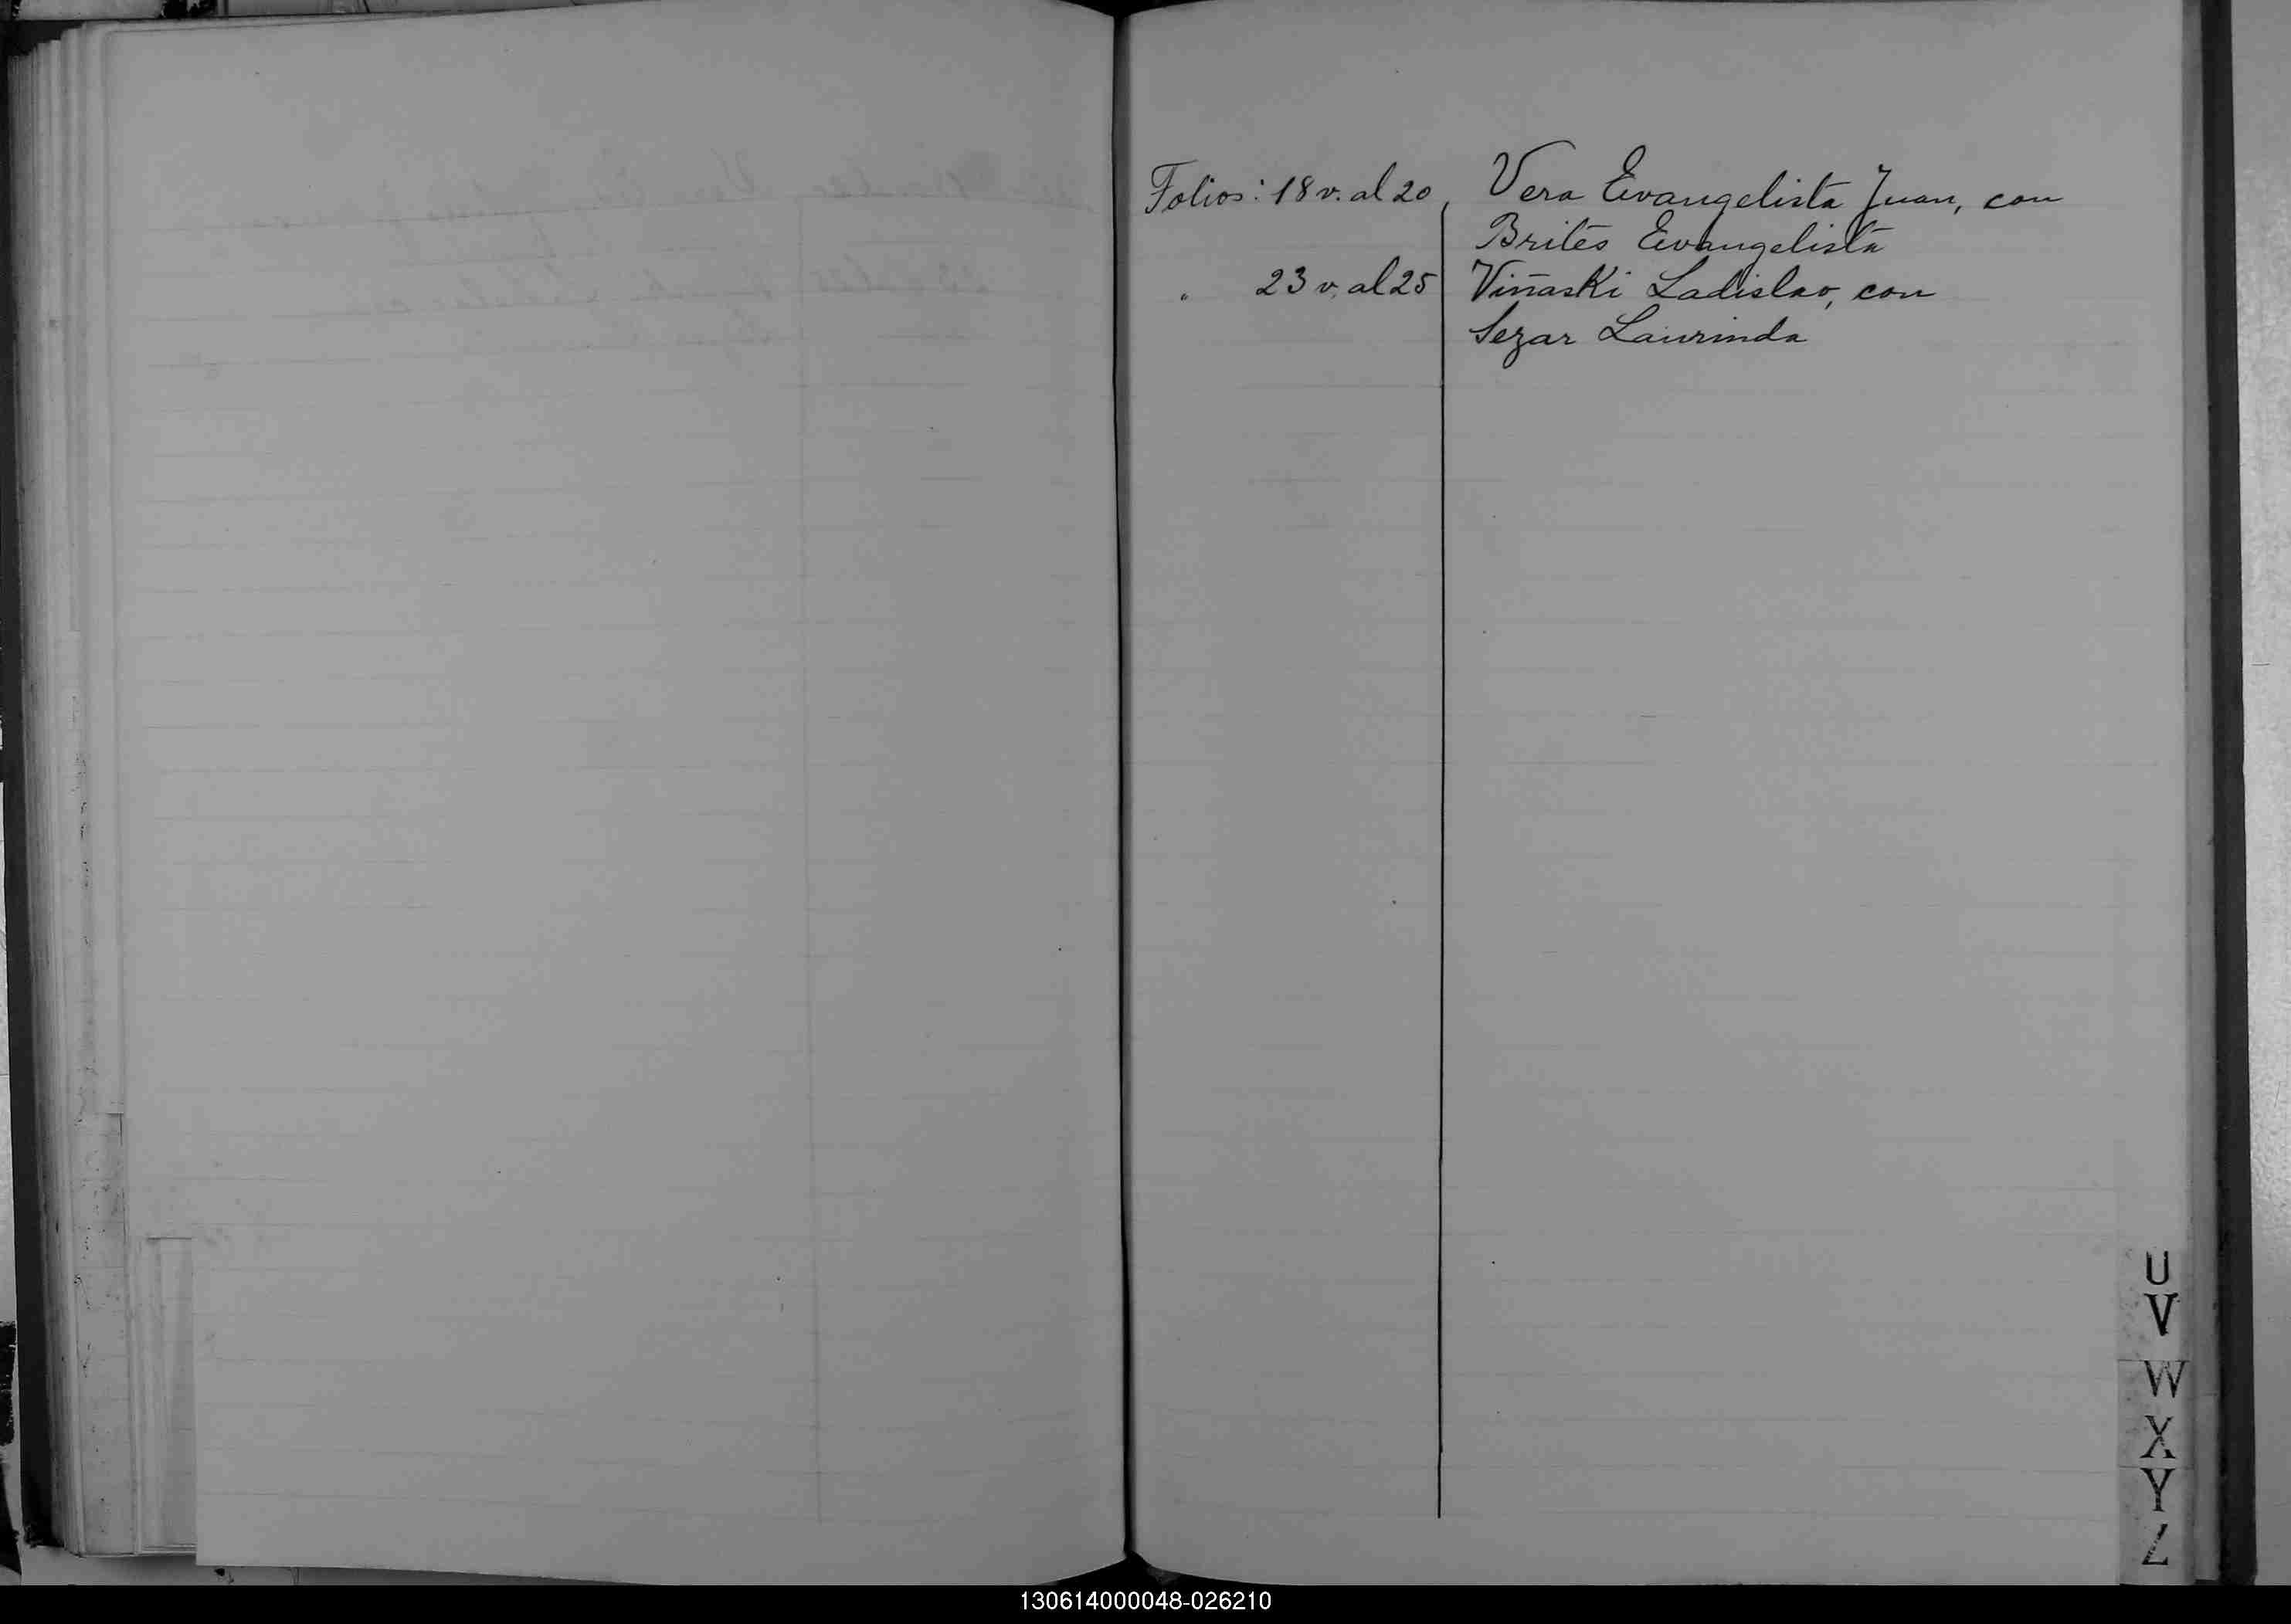 Folios: 18 v. al 20, Vera Evangelista Juan, con
Brites Evangelista
" 23 v. al 25 Viñaski Ladislao, con
Sezar Laurinda
U
V
W
X
Y
Z
130614000048-026210